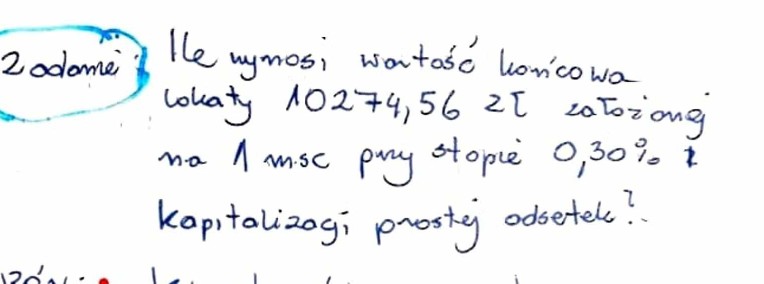 Zadanie: Ile wynosi wartość końcowa
lokaty 10274,56 zł założonej
na 1 msc przy stopie 0,30% i
kapitalizacji prostej odsetek?